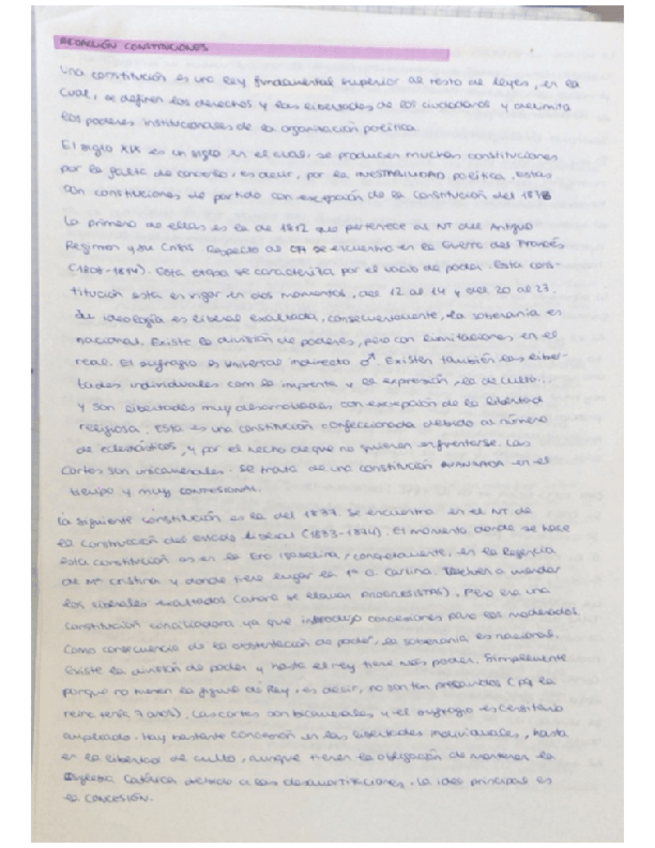 REDACCIÓN CONSTITUCIONES
Una constitución es una ley fundamental superior al resto de leyes, en la
cual, se definen los derechos y las libertades de los ciudadanos y delimita
los poderes institucionales de la organización política.
El siglo XIX es un siglo en el cual, se producen muchas constituciones
por la falta de consenso, es decir, por la INESTABILIDAD política. Estas
son constituciones de partido con excepción de la constitución del 1878
La primera de ellas es la de 1812 que pertenece al NT del Antiguo
Regimen y su Crisis. Respecto al CH se encuentra en la Guerra del Francés
(1808-1814). Esta etapa se caracteriza por el vacío de poder. Esta cons-
titución está en vigor en dos momentos, del 12 al 14 y del 20 al 23.
Su ideología es liberal exaltada, consecuentemente, la soberanía es
nacional. Existe la división de poderes, pero con limitaciones en el
real. El sufragio es universal indirecto ♂. Existen también las liber-
tades individuales com la imprenta y la expresión, la de culto...
y son libertades muy desarrolladas con excepción de la libertad
religiosa. Esta es una constitución confeccionada debido al número
de eclesiásticos, y por el hecho de que no quieren enfrentarse. Las
Cortes son unicamerales. Se trata de una constitución AVANZADA en el
tiempo y muy CONFESIONAL.
La siguiente constitución es la del 1837. Se encuentra en el NT de
la Construcción del estado liberal (1833-1874). El momento donde se hace
esta constitución es en la Era Isabelina, concretamente, en la Regencia
de Mª Cristina y donde tiene lugar la 1ª G. Carlina. a mandar
los liberales exaltados (ahora se llaman PROGRESISTAS). Pero era una
constitución conciliadora ya que introdujo concesiones para los moderados.
Como consecuencia de la ostentación de poder, la soberanía es nacional.
Existe la división de poder y hasta el rey tiene más poder. Simplemente
porque no tienen la figura de Rey, es decir, no son tan (pq la
reina tenía 7 años). Las cortes son bicamerales y el sufragio es censitario
ampliado. Hay bastante concesión en las libertades individuales, hasta
en la libertad de culto, aunque tienen la obligación de mantener la
Iglesia Católica debido a las desamortizaciones. La idea principal es
la CONCESIÓN.